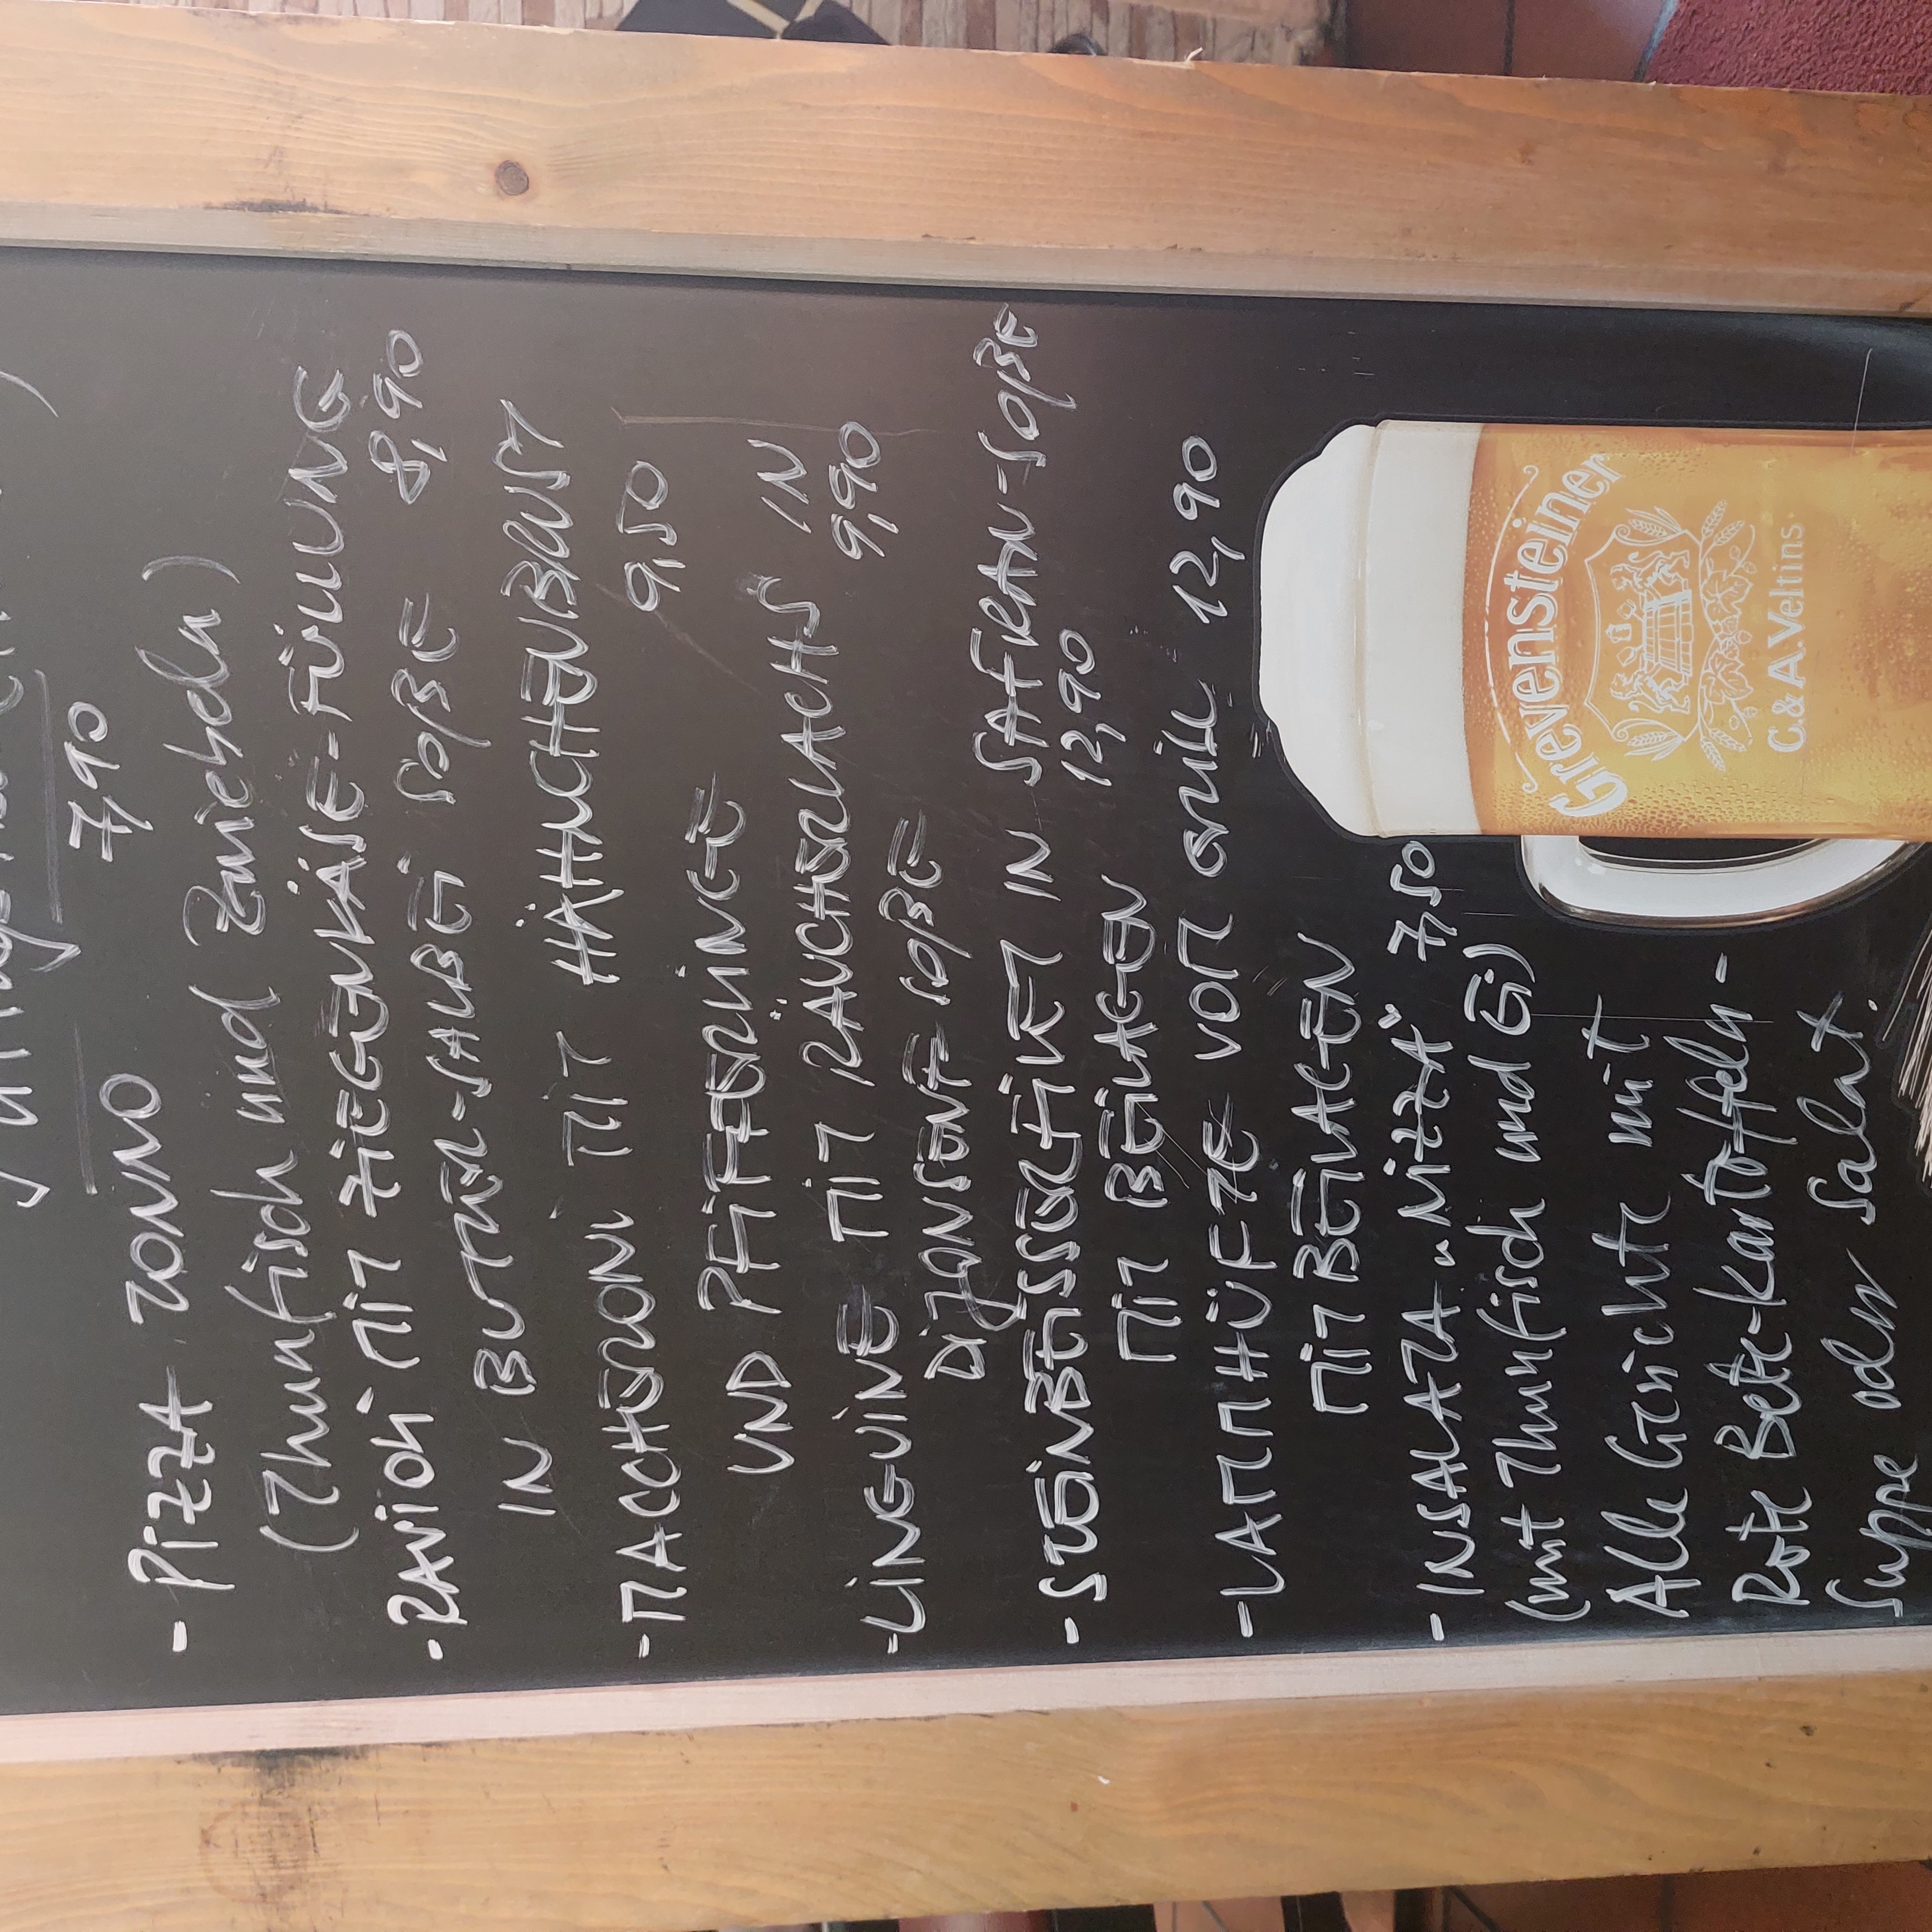 - PIZZA TONNO 7,90
(Thunfisch und Zwiebeln)
- RAVIOLI MIT ZIEGENKÄSE-FÜLLUNG
IN BUTTER-SALBEI SOßE 8,90
- MACCHERONI MIT HÄHNCHENBRUST
UND PFIFFERLINGE 9,50
- LINGUINE MIT RÄUCHERLACHS IN
DIJONSENF SOßE 9,90
- STEINBEISSERFILET IN SAFRAN-SOßE
MIT BEILAGEN 12,90
- LAMMHÜFTE VOM GRILL 12,90
MIT BEILAGEN
- INSALATA „NIZZA" 7,50
(mit Thunfisch und Ei)
Alle Gerichte mit
Rote Bete-Kartoffeln-
Suppe oder Salat.
Grevensteiner
C.& A.Veltins